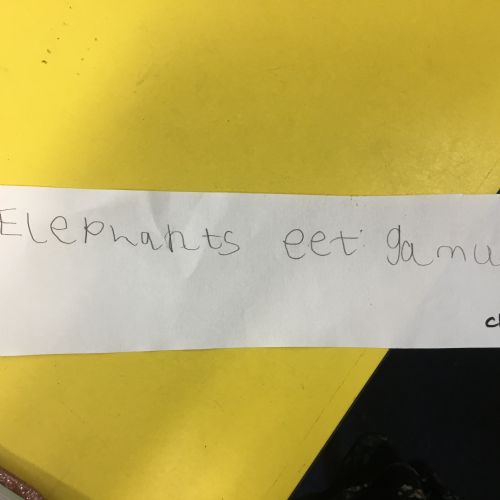 Elephants eet ganu